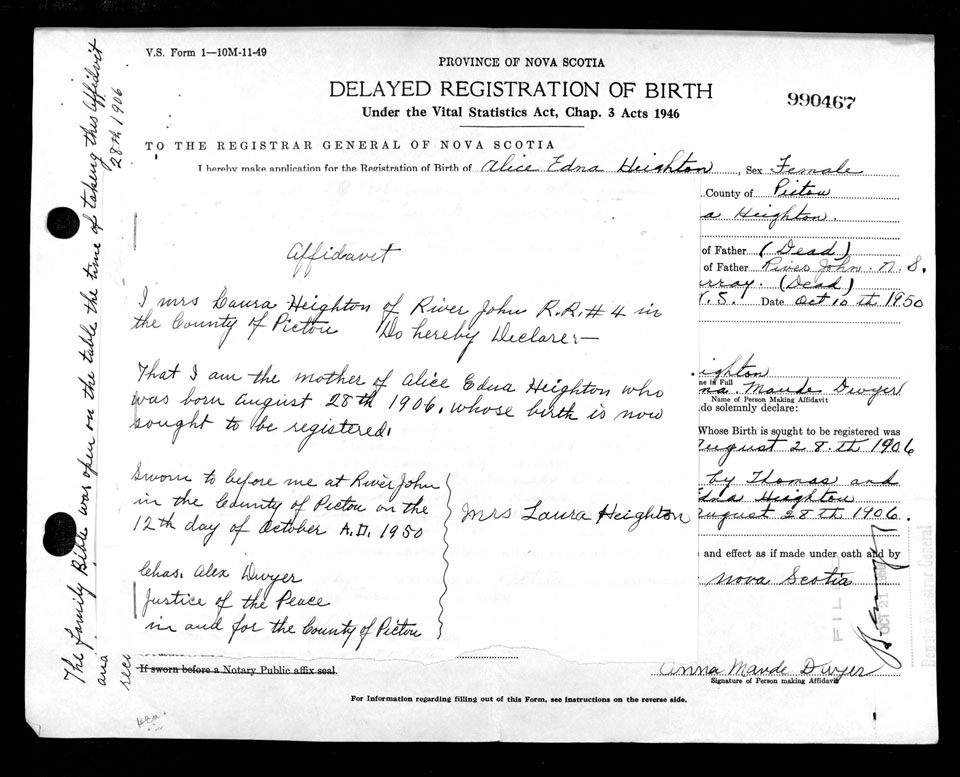 V.S. Form 1—10M-11-49
PROVINCE OF NOVA SCOTIA
DELAYED REGISTRATION OF BIRTH
990467
Under the Vital Statistics Act, Chap. 3 Acts 1946
TO THE REGISTRAR GENERAL OF NOVA SCOTIA
I hereby make application for the Registration of Birth of Alice Edna Heighton, Sex Female
County of Pictou
a Heighton.
of Father (Dead)
of Father River John N.S.
rray. (Dead)
N.S. Date Oct 10th 1950
Affidavit
I Mrs Laura Heighton of River John R.R.#4 in
the County of Pictou Do hereby Declare:—
That I am the mother of Alice Edna Heighton who
was born August 28th 1906, whose birth is now
sought to be registered.
Sworn to before me at River John
in the County of Pictou on the
12th day of October A.D. 1950
Mrs Laura Heighton
Chas. Alex Dwyer
Justice of the Peace
in and for the County of Pictou
ighton
me in Full
na Maude Dwyer
Name of Person Making Affidavit
do solemnly declare:
Whose Birth is sought to be registered was
August 28.th 1906
by Thomas and
Edna Heighton
August 28th 1906.
and effect as if made under oath and by
Nova Scotia
FILED
OCT 21 1950
Deputy Registrar General
If sworn before a Notary Public affix seal.
Anna Maude Dwyer
Signature of Person making Affidavit
For Information regarding filling out of this Form, see instructions on the reverse side.
The family Bible was open on the table the time of taking this Affidavit
and
28th 1906
rece